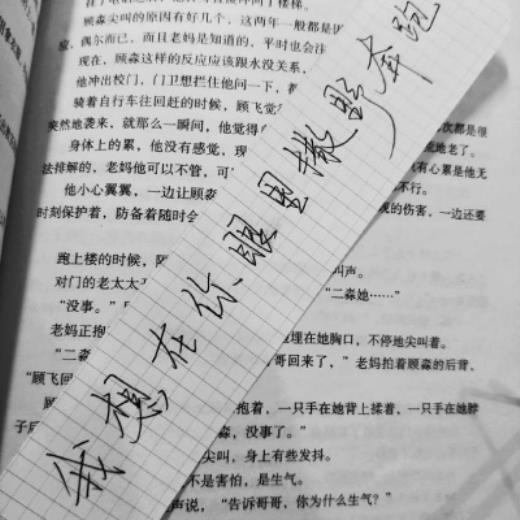 了电话之后,他
楼梯。
顾淼尖叫的原因有好几个,这两年一般都是因
应,偶尔而已,而且老妈是知道的,平时也会注
现在,顾淼这样的反应应该跟水没关系,
他冲出校门,门卫想拦住他问一下,都
骑着自行车往回赶的时候,顾飞觉
次都是很
突然地袭来,就那么一瞬间,他觉得自
荒地老了。
身体上的累,他没有感觉,现
有心累是他无
法排解的,老妈他可以不管,可
不行。
他小心翼翼,一边让顾淼
现的伤害,一边还要
时刻保护着,防备着随时会
跑上楼的时候,
叫声。
对门的老太太
“二淼她……”
“没事。”
老妈正抱
埋在她胸口,不停地尖叫着。
“二淼
哥回来了,”老妈拍着顾淼的后背,
“顾飞回
顾
抱着,一只手在她背上揉着,一只手在她脖
子后
淼,没事了。”
尖叫,身上有些发抖。
不是害怕,是生气。
声说,“告诉哥哥,你为什么生气?”
我想在你眼里撒野奔跑